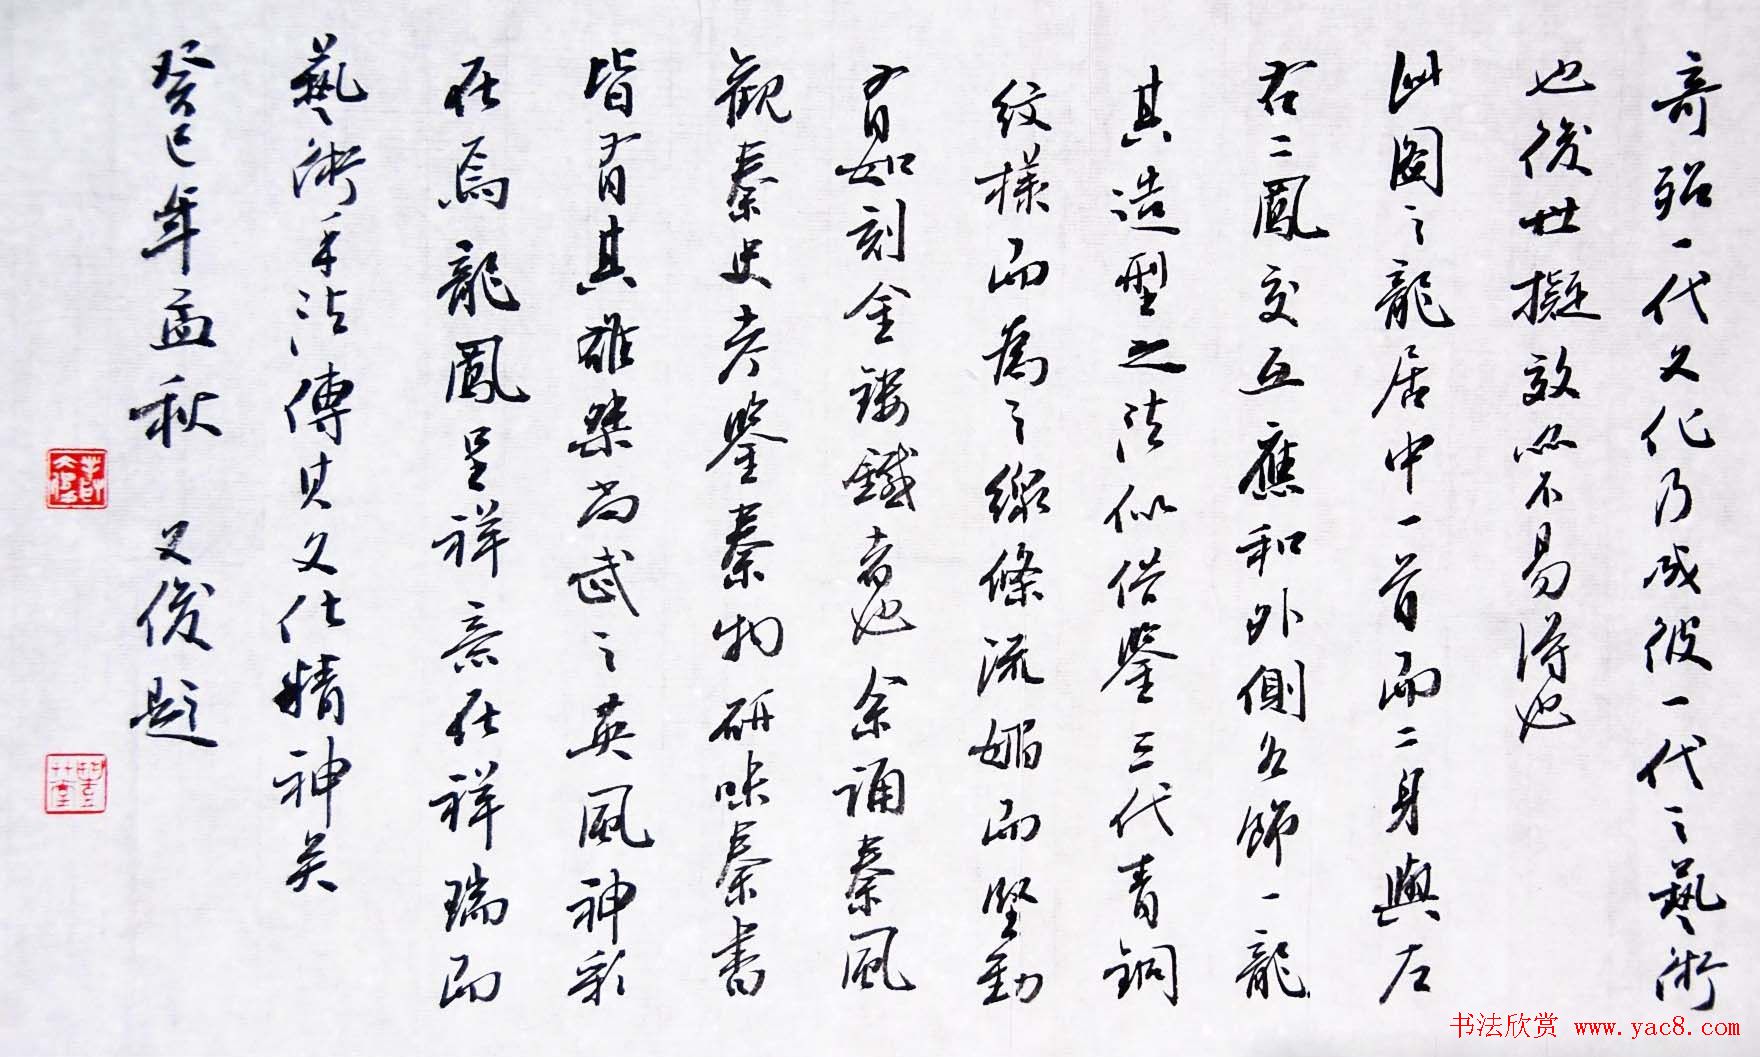 奇殆一代文化乃成彼一代之藝術
也後世擬效必不易得也
此圖之龍居中一首而二身與左
右二鳳交互應和外側各飾一龍
其造型之法似借鑒三代青銅
紋樣而為之線條流媚而堅勁
有如刻金鏤鐵者也余誦秦風
觀秦史考鑒秦物研味秦書
皆有其雄桀尚武之英風神彩
在焉龍鳳呈祥意在祥瑞而
藝術手法傳其文化精神矣
癸巳年孟秋 又俊題
书法欣赏 www.yac8.com